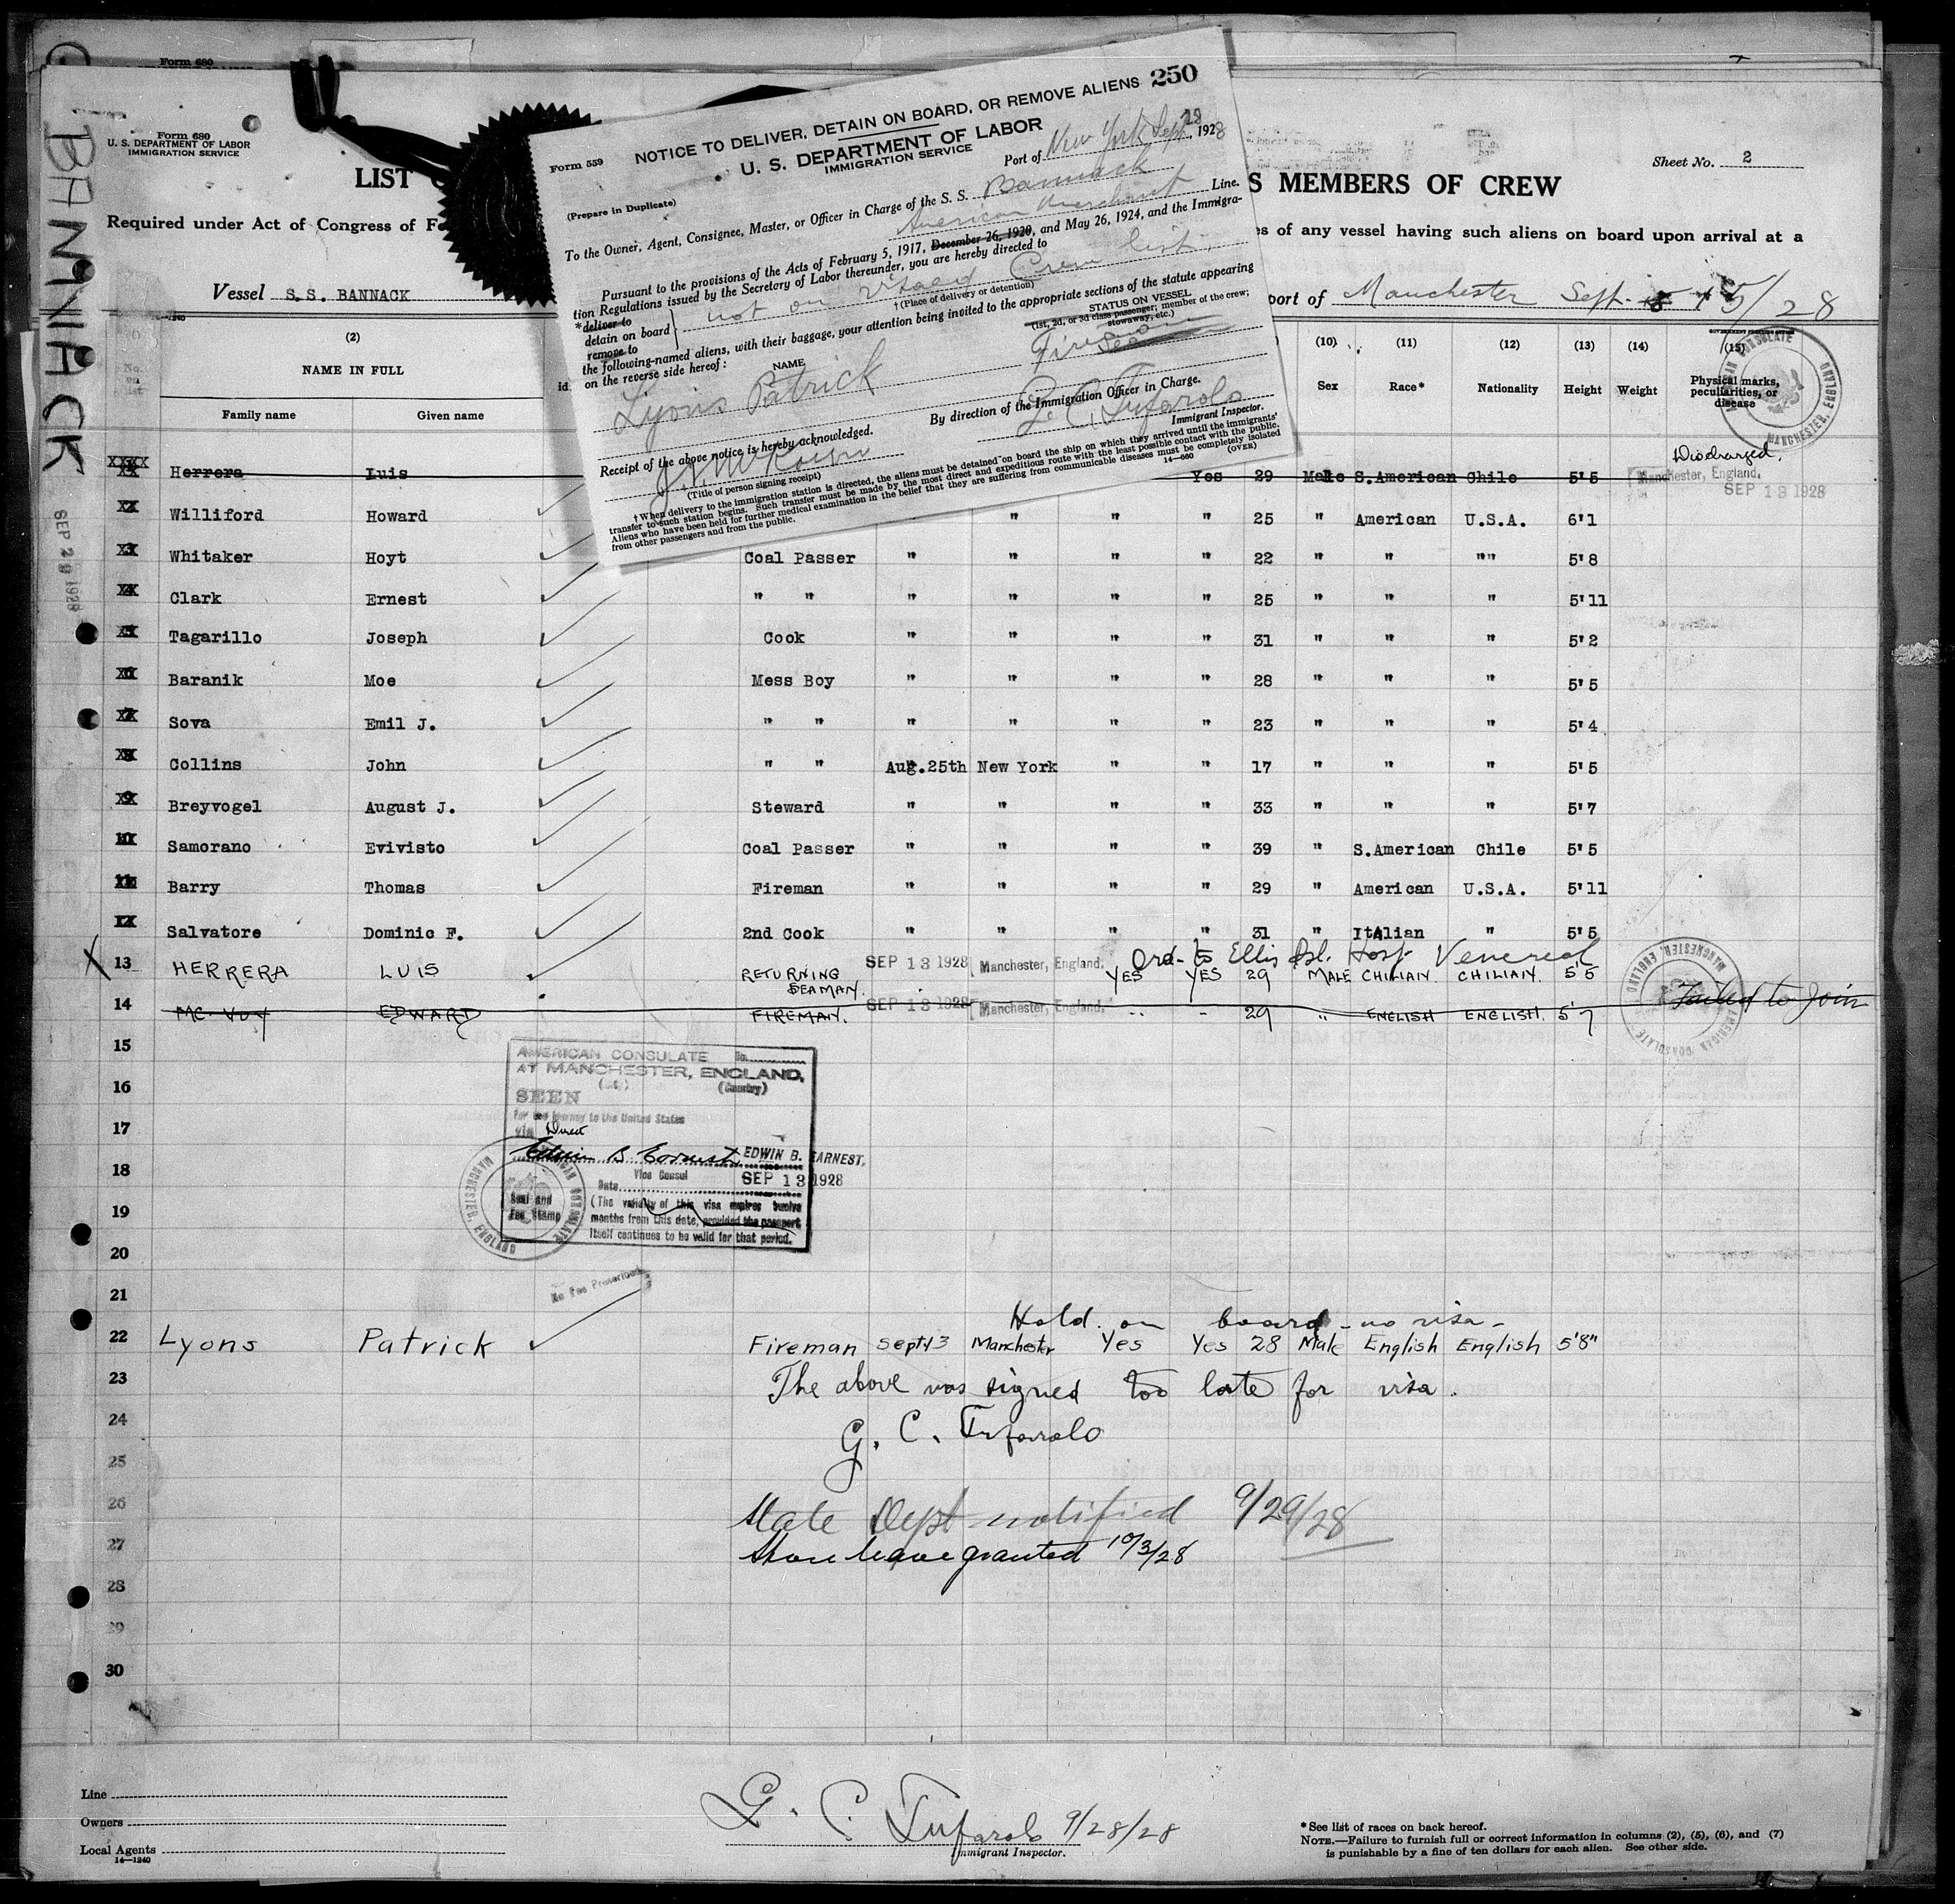 Form 680
Form 680
U. S. DEPARTMENT OF LABOR
IMMIGRATION SERVICE
BANNACK
SEP 29 1928
LIST
Required under Act of Congress of
Vessel S.S. BANNACK
250
Form 559
NOTICE TO DELIVER, DETAIN ON BOARD, OR REMOVE ALIENS
U. S. DEPARTMENT OF LABOR
IMMIGRATION SERVICE
(Prepare in Duplicate)
Port of New York, Sept 28, 1928
To the Owner, Agent, Consignee, Master, or Officer in Charge of the S. S. Bannack
American Merchant Line.
Pursuant to the provisions of the Acts of February 5, 1917, December 26, 1920, and May 26, 1924, and the Immigra-
tion Regulations issued by the Secretary of Labor thereunder, you are hereby directed to
*deliver to
detain on board
remove to
not on visaed Crew list.
†(Place of delivery or detention)
the following-named aliens, with their baggage, your attention being invited to the appropriate sections of the statute appearing
on the reverse side hereof:
NAME
STATUS ON VESSEL
(1st, 2d, or 3d class passenger; member of the crew; stowaway, etc.)
Lyons Patrick
Fireman
By direction of the Immigration Officer in Charge.
G. C. Tufarolo
Immigrant Inspector.
Receipt of the above notice is hereby acknowledged.
(Title of person signing receipt)
14—660
(OVER)
† When delivery to the immigration station is directed, the aliens must be detained on board the ship on which they arrived until the immigrants'
transfer to such station begins. Such transfer must be made by the most direct and expeditious route with the least possible contact with the public.
Aliens who have been held for further medical examination in the belief that they are suffering from communicable diseases must be completely isolated
from other passengers and from the public.
Sheet No. 2
S MEMBERS OF CREW
es of any vessel having such aliens on board upon arrival at a
port of Manchester Sept. 15/28
No. on list
(2)
NAME IN FULL
Family name
Given name
(10)
Sex
(11)
Race*
(12)
Nationality
(13)
Height
(14)
Weight
(15)
Physical marks, peculiarities, or disease
AMERICAN CONSULATE MANCHESTER, ENGLAND
Herrera Luis Yes 29 Male S.American Chile 5'5
Discharged.
Manchester, England.
SEP 13 1928
2 Williford Howard " " " 25 " American U.S.A. 6'1
3 Whitaker Hoyt Coal Passer " " " " 22 " " "" 5'8
4 Clark Ernest " " " " " " 25 " " " 5'11
5 Tagarillo Joseph Cook " " " " 31 " " " 5'2
6 Baranik Moe Mess Boy " " " " 28 " " " 5'5
7 Sova Emil J. " " " " " " 23 " " " 5'4
8 Collins John " " Aug. 25th New York " " 17 " " " 5'5
9 Breyvogel August J. Steward " " " " 33 " " " 5'7
10 Samorano Evivisto Coal Passer " " " " 39 " S.American Chile 5'5
11 Barry Thomas Fireman " " " " 29 " American U.S.A. 5'11
12 Salvatore Dominic F. 2nd Cook " " " " 31 " Italian " 5'5
Ord. to Ellis Isl. Hosp Venereal
13 HERRERA LUIS RETURNING SEAMAN. SEP 13 1928 Manchester, England. YES YES 29 MALE CHILIAN CHILIAN. 5'5
14 MC. VOY EDWARD FIREMAN. SEP 13 1928 Manchester, England. " " 29 " ENGLISH ENGLISH. 5'7 Failed to join
AMERICAN CONSULATE MANCHESTER, ENGLAND
15
AMERICAN CONSULATE No.
AT MANCHESTER, ENGLAND,
(City) (Country)
16
SEEN
for the journey to the United States
17
via Direct
Edwin B Earnest EDWIN B. EARNEST,
18
Vice Consul
Date SEP 13 1928
Seal and Fee Stamp
(The validity of this visa expires twelve
19
months from this date, provided the passport
itself continues to be valid for that period.
AMERICAN CONSULATE MANCHESTER, ENGLAND
20
21
No Fee Prescribed
Hold on board - no visa -
22 Lyons Patrick Fireman Sept 13 Manchester Yes Yes 28 Male English English 5'8"
23 The above was signed too late for visa.
24 G. C. Tufarolo
25
26 State Dept notified 9/29/28
27 Shore leave granted 10/3/28
28
29
30
Line
Owners
Local Agents
14—1240
G. C. Tufarolo 9/28/28
Immigrant Inspector.
*See list of races on back hereof.
NOTE.—Failure to furnish full or correct information in columns (2), (5), (6), and (7)
is punishable by a fine of ten dollars for each alien. See other side.